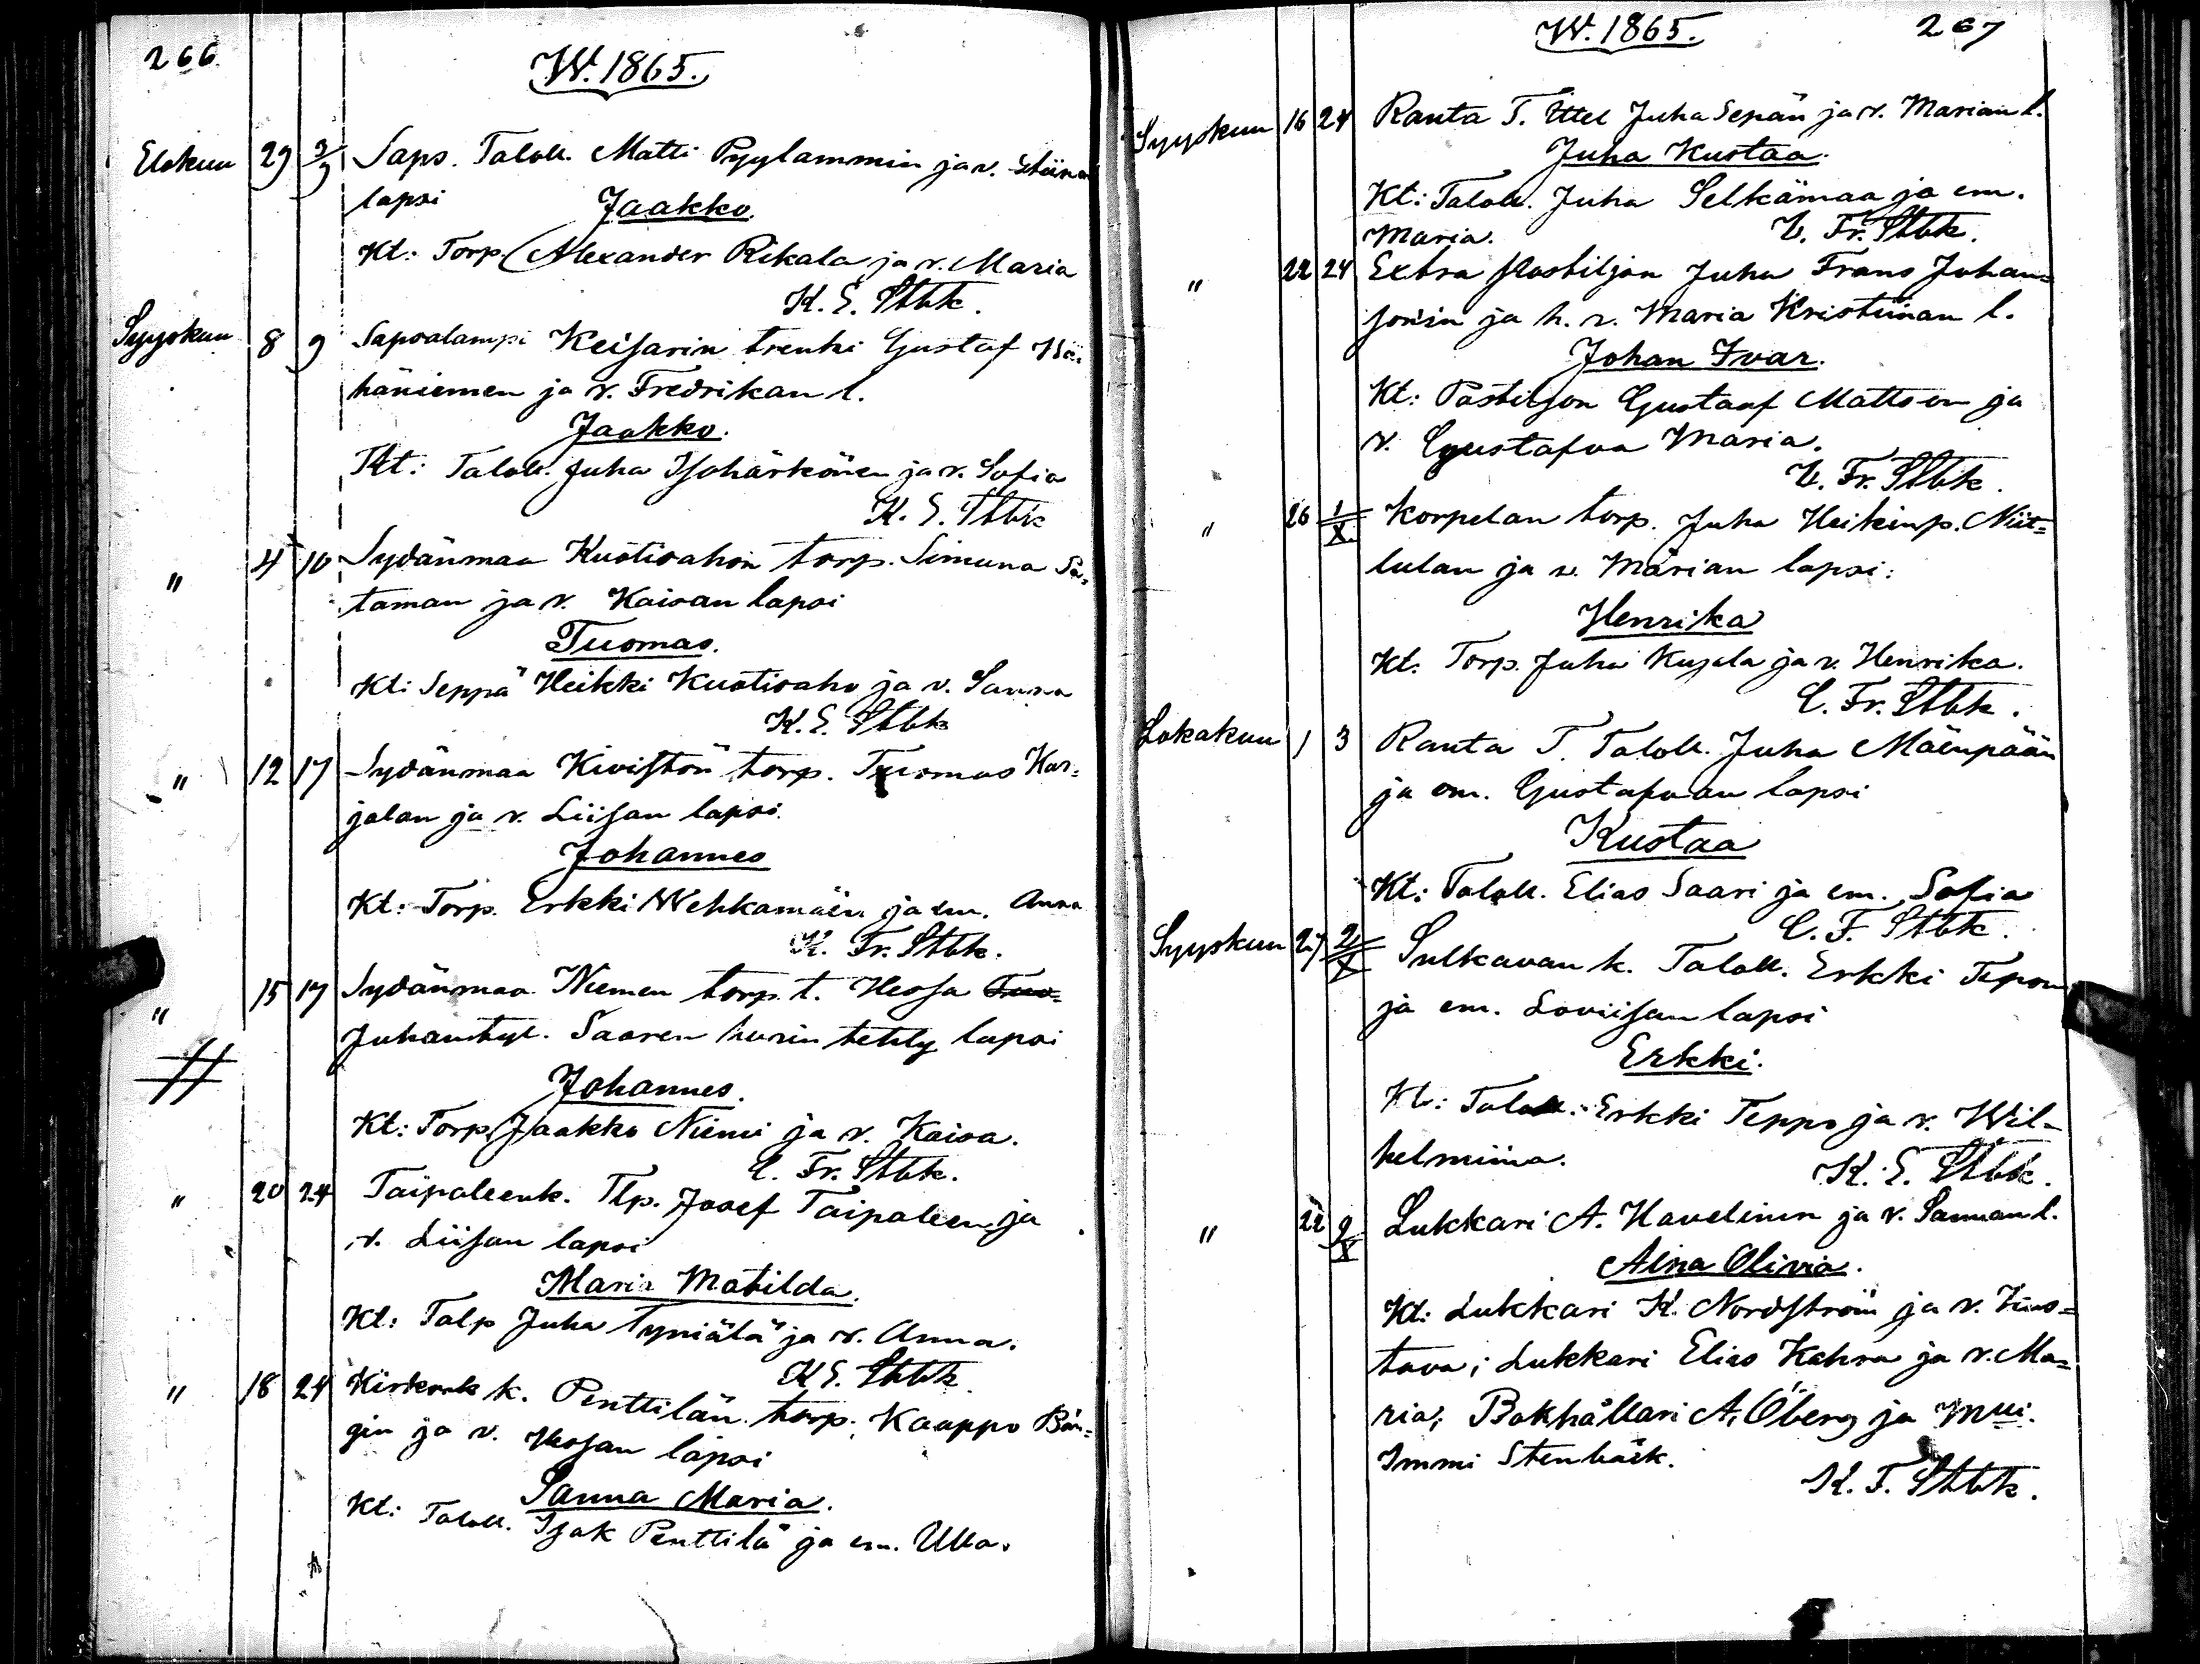 266
W. 1865.
Elokuu 29 3/9 Saps. Taloll. Matti Pyylammin ja v. Stiinan
lapsi Jaakko.
Kt: Torp. Alexander Rikala ja v. Maria
K. E. Stbk.
Syyskuu 8 9 Sapsalampi Keisarin trenki Gustaf
häniemen ja v. Fredrikan l.
Jaakko.
Kt: Taloll. Juha Isohärkönen ja v. Sofia
K. E. Stbk
" 4 10 Sydänmaa Kuotisahon torp. Simuna Sa=
taman ja v. Kaisan lapsi
Tuomas.
Kt: Seppä Heikki Kuotisaho ja v. Sanna
K. E. Stbk
" 12 17 Sydänmaa Kiviston torp. Tuomas Kar=
jalan ja v. Liisan lapsi.
Johannes
Kt: Torp. Erkki Wehkamäen ja em. Anna
K. Fr. Stbk.
" 15 17 Sydänmaa Niemen torp. t. Hessa Tuo=
Juhantyt. Saaren huorin tehty lapsi
Johannes.
Kt: Torp. Jaakko Niemi ja v. Kaisa.
C. Fr. Stbk.
" 20 24 Taipaleenk. Tlp. Josef Taipaleen ja
v. Liisan lapsi
Maria Matilda.
Kt: Talp Juha Tyniälä ja v. Anna.
K E. Stbk
" 18 24 k. Penttilän torp. Kaappo Bän=
gin ja v. Hessan lapsi
Sanna Maria.
Kt: Taloll. Isak Penttilä ja em. Ulla.
W. 1865. 267
Syyskuu 16 24 Ranta T. Ittel Juha Sepän ja v. Marian l.
Juha Kustaa.
Kt: Taloll. Juha Selkämaa ja em.
Maria. C. Fr. Stbk.
" 22 24 Extra Postiljon Juha Frans Johan=
sonin ja h. v. Maria Kristiinan l.
Johan Ivar.
Kt: Postiljon Gustaaf Mattson ja
v. Gustafva Maria.
C. Fr. Stbk.
" 26 1/X Korpelan torp. Juha Heikinp. Niit=
lulan ja v. Marian lapsi:
Henrika
Kt: Torp. Juha Kujala ja v. Henrika.
C. Fr. Stbk.
Lokakuu 1 3 Ranta T. Taloll. Juha Mäenpään
ja em. Gustafvan lapsi
Kustaa
Kt: Taloll. Elias Saari ja em. Sofia
C. F. Stbk.
Syyskuu 27 2/X Sulkavan k. Taloll. Erkki Tepon
ja em. Loviisan lapsi
Erkki.
Kt: Taloll. Erkki Teppo ja v. Wil=
helmiina. K. E. Stbk.
" 22 9/X Lukkari A. Havelinin ja v. Sannan l.
Aina Olivia.
Kt: Lukkari K. Nordström ja v.
tava; Lukkari Elias Kahra ja v. Ma=
ria; Bokhållari A. Öberg ja Mui.
Immi Stenbäck.
K. F. Stbk.